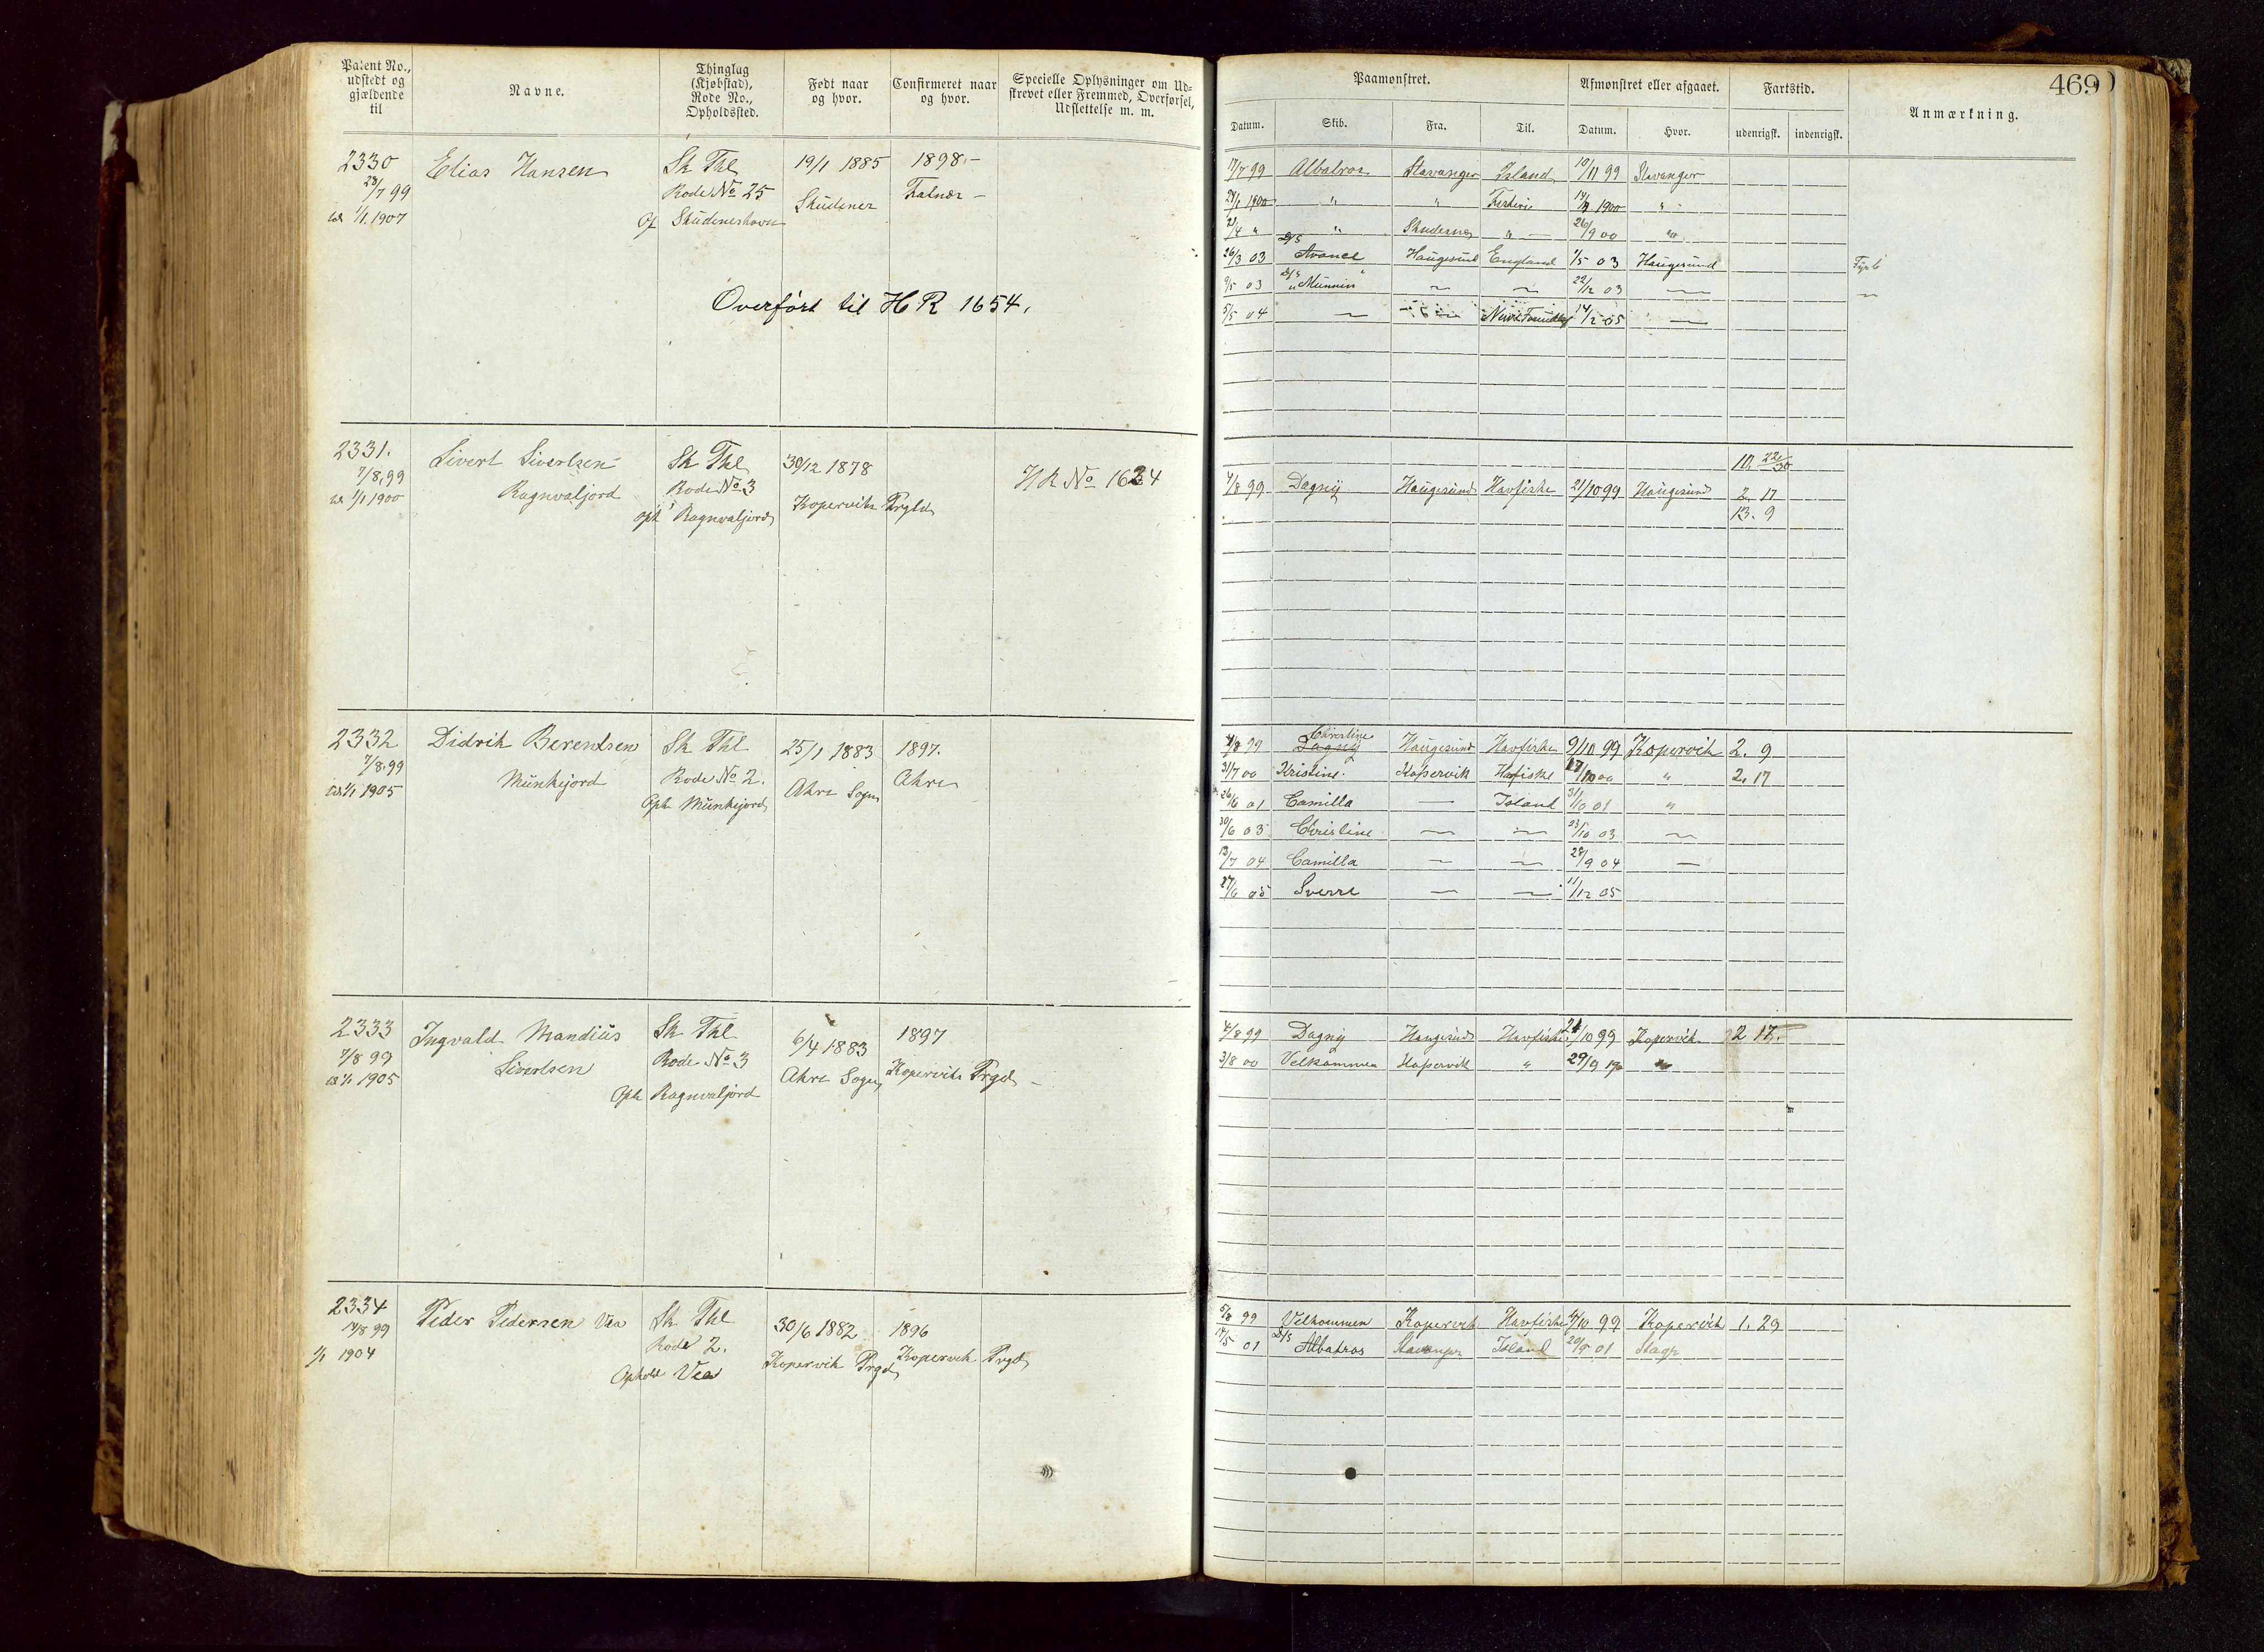 Patent No.,
udstedt og
gjældende
til
Navne.
Thinglag
(Kjøbstad),
Rode No.,
Opholdssted.
Født naar
og hvor.
Confirmeret naar
og hvor.
Specielle Oplysninger om Ud-
skrevet eller Fremmed, Overførsel,
Udslettelse m. m.
2330
28/7 99
1/1 1907
Elias Hansen
Sk Thl
Rode No 25
Skudeneshavn
19/1 1885
Skudenes
1898.-
Falnæs -
Overført til HR 1654.
2331.
7/8.99
1/1 1900
Sivert Sivertsen
Ragnvaljord
Sk Thl
Rode No 3
oph Ragnvaljord
30/12 1878
Kopervik Prgld
HR No 1634
2332
7/8.99
1/1 1905
Didrik Berentsen
Munkejord
Sk Thl
Rode No 2.
Oph Munkejord
25/1 1883
Akre Sogn
1897.
Akre
2333
7/8 99
1/1 1905
Ingvald Mandius
Sivertsen
Sk Thl
Rode No 3
Oph Ragnvaljord
6/4 1883
Akre Sogn
1897
Kopervik Prgd -
2334
14/8 99
1/1 1904
Peder Pedersen Vea
Sk Thl
Rode 2.
Ophold Vea
30/6 1882
Kopervik Prgd
1896
Kopervik Prgd
469
Paamønstret.
Afmønstret eller afgaaet.
Fartstid.
Anmærkning.
Datum.
Skib.
Fra.
Til.
Datum.
Hvor.
udenrigsk.
indenrigsk.
17/7 99 Albatros Stavanger Island 10/11 99 Stavanger
1900 " " 1900 "
2/4 " " Skudenes " - 26/9 00 "
26/3 03 D/S Avance Haugesund England 1/5 03 Haugesund
9/5 03 D/S "Munin" 22/12 03
5/5 04 14/2 05
10. 22/30
4/8 99 Dagny Haugesund Havfiske 21/10 99 Haugesund 2. 17
13. 9
4/8 99 Christine Dagny Haugesund Havfiske 9/10 99 Kopervik 2. 9
31/7 00 Kristine. Kopervik Hafiske 17/10 00 " 2. 17
26/6 01 Camilla — Island 31/10 01 "
30/6 03 Christine — — 03/10 03 —
13/7 04 Camilla — — 28/9 04 —
27/6 05 Sverre — — 11/12 05
4/8 99 Dagny Haugesund Havfiske 21/10 99 Kopervik 2 17.
3/8 00 Velkommen Kopervik " 29/9
5/8 99 Velkommen Kopervik Havfiske 4/10 99 Kopervik 1. 29
14/5 01 D/S Albatros Stavanger Island 20/9 01 Stagr